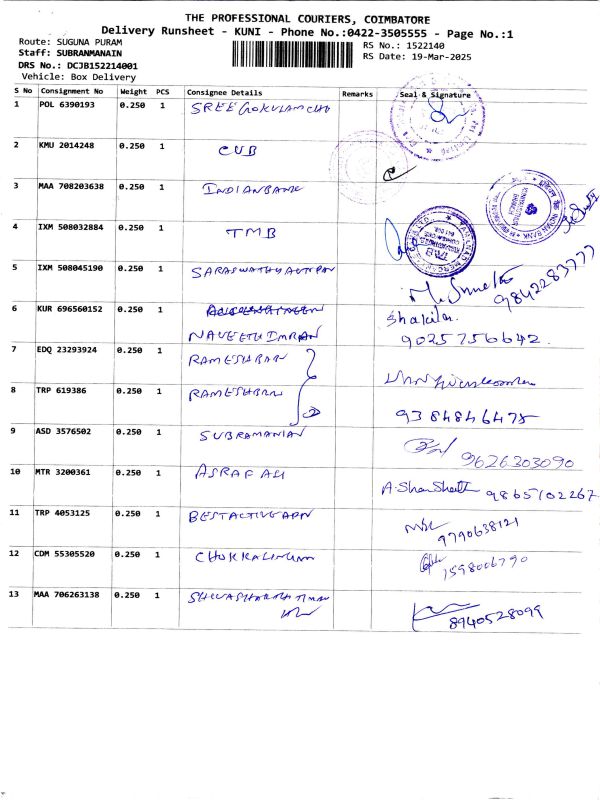 THE PROFESSIONAL COURIERS, COIMBATORE
Delivery Runsheet - KUNI - Phone No.:0422-3505555 - Page No.:1
Route: SUGUNA PURAM
Staff: SUBRANMANAIN
DRS No.: DCJB152214001
Vehicle: Box Delivery
RS No.: 1522140
RS Date: 19-Mar-2025
S No Consignment No Weight PCS Consignee Details Remarks Seal & Signature
1 POL 6390193 0.250 1
2 KMU 2014248 0.250 1 CUB
3 MAA 708203638 0.250 1 INDIANBANK
4 IXM 508032884 0.250 1 TMB
5 IXM 508045190 0.250 1 9842283777
6 KUR 696560152 0.250 1 Shakila
NAVEETH IMRAN 9025756642
7 EDQ 23293924 0.250 1 RAMESHBABU
8 TRP 619386 0.250 1 9384846475
9 ASD 3576502 0.250 1 SUBRAMANIAN 9626303090
10 MTR 3200361 0.250 1 ASRAF ALI 9865102267
11 TRP 4053125 0.250 1 9790638121
12 CDM 55305520 0.250 1 CHOKKALINGAM 1598006790
13 MAA 706263138 0.250 1 8940528099